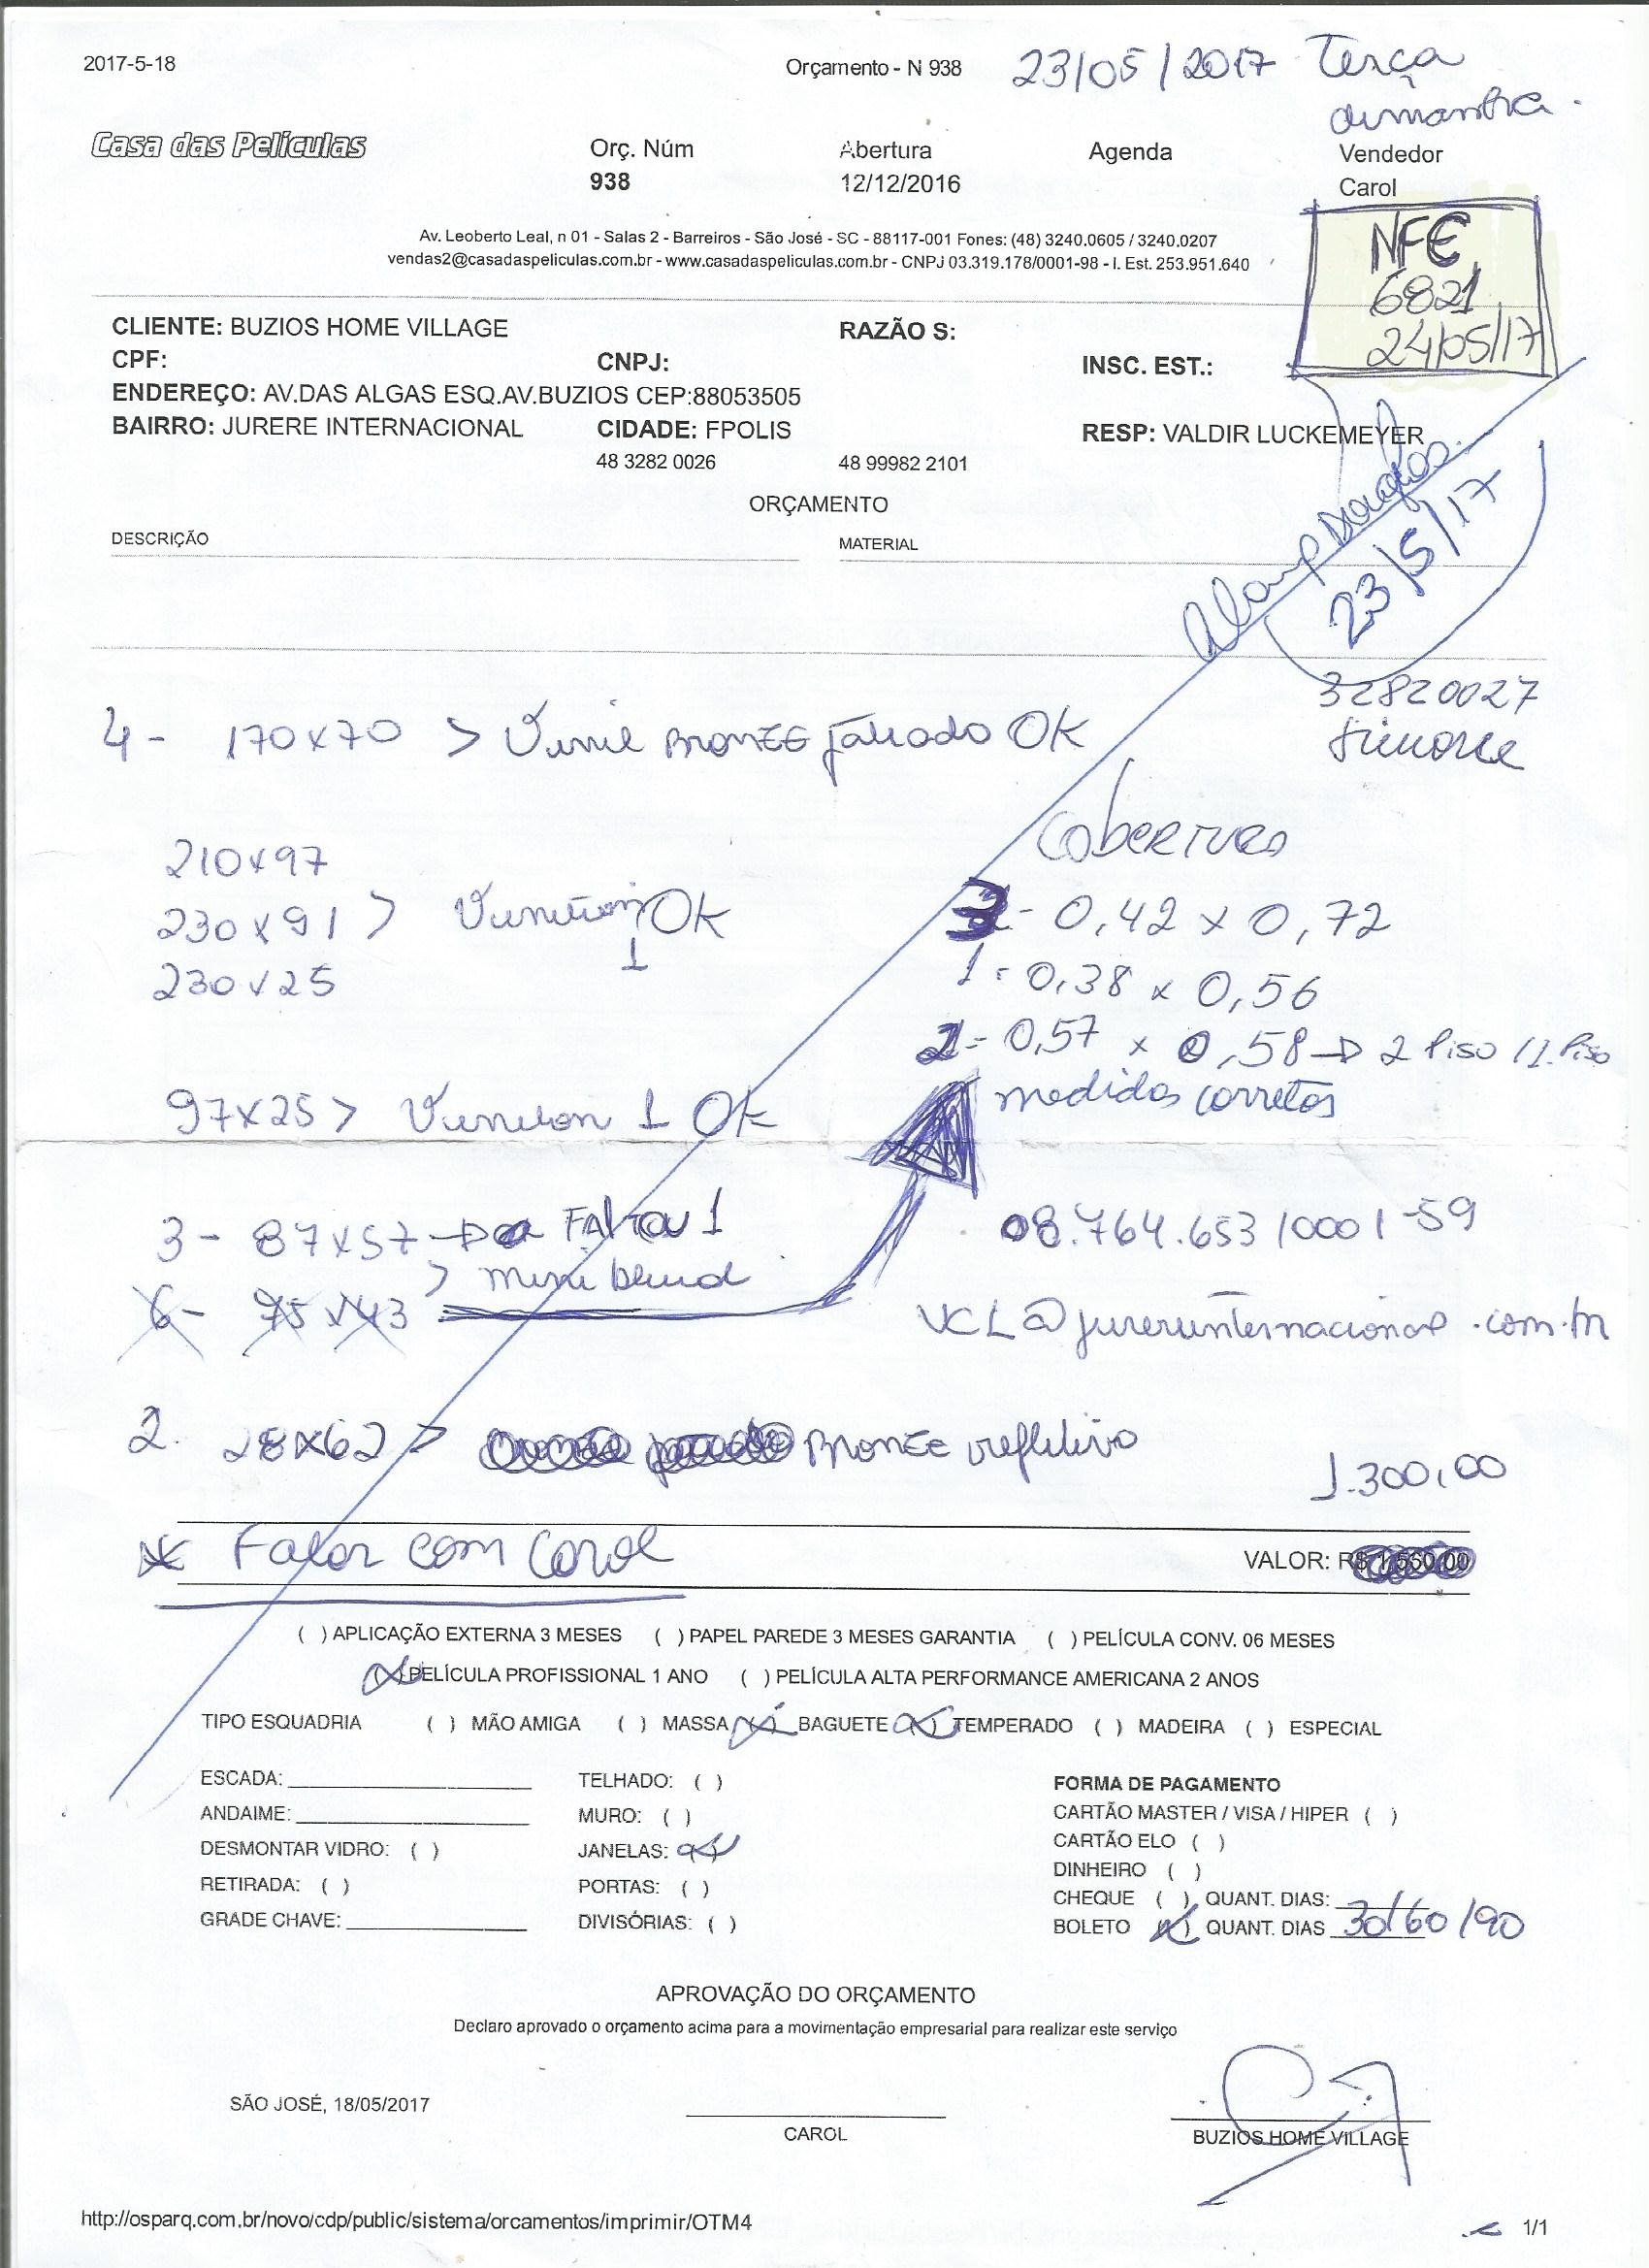 2017-5-18
Orçamento - N 938
23/05/2017 Terça
Casa das Películas
Orç. Núm
Abertura
Agenda
Vendedor
938
12/12/2016
Carol
Av. Leoberto Leal, n 01 - Salas 2 - Barreiros - São José - SC - 88117-001 Fones: (48) 3240.0605 / 3240.0207
vendas2@casadaspeliculas.com.br - www.casadaspeliculas.com.br - CNPJ 03.319.178/0001-98 - I. Est. 253.951.640
NFE
6821
24/05/17
CLIENTE: BUZIOS HOME VILLAGE
RAZÃO S:
CPF:
CNPJ:
INSC. EST.:
ENDEREÇO: AV.DAS ALGAS ESQ.AV.BUZIOS CEP:88053505
BAIRRO: JURERE INTERNACIONAL
CIDADE: FPOLIS
RESP: VALDIR LUCKEMEYER
48 3282 0026
48 99982 2101
ORÇAMENTO
DESCRIÇÃO
MATERIAL
23/5/17
32820027
Simone
4 - 170x70 > Vinil Bronze jateado OK
Cobertura
210x97
230x91 > OK
1
230x25
3 - 0,42 x 0,72
1 - 0,38 x 0,56
2 - 0,57 x 0,58 → 2 Piso / 1. Piso
medidas corretas
97x25 > 1 OK
3 - 87x57 → Falta 1
> mini blind
6 - 75x43
08.764.653/0001-59
VCL@jurereinternacional.com.br
2. 28x62 > Bronze refletivo
1.300,00
* Falar com Carol
VALOR: R$ 1.560,00
( ) APLICAÇÃO EXTERNA 3 MESES ( ) PAPEL PAREDE 3 MESES GARANTIA ( ) PELÍCULA CONV. 06 MESES
(x) PELÍCULA PROFISSIONAL 1 ANO ( ) PELÍCULA ALTA PERFORMANCE AMERICANA 2 ANOS
TIPO ESQUADRIA ( ) MÃO AMIGA ( ) MASSA (x) BAGUETE (x) TEMPERADO ( ) MADEIRA ( ) ESPECIAL
ESCADA:
TELHADO: ( )
FORMA DE PAGAMENTO
ANDAIME:
MURO: ( )
CARTÃO MASTER / VISA / HIPER ( )
DESMONTAR VIDRO: ( )
JANELAS: (x)
CARTÃO ELO ( )
RETIRADA: ( )
PORTAS: ( )
DINHEIRO ( )
GRADE CHAVE:
DIVISÓRIAS: ( )
CHEQUE ( ) QUANT. DIAS:
BOLETO (x) QUANT. DIAS 30/60/90
APROVAÇÃO DO ORÇAMENTO
Declaro aprovado o orçamento acima para a movimentação empresarial para realizar este serviço
SÃO JOSÉ, 18/05/2017
CAROL
BUZIOS HOME VILLAGE
http://osparq.com.br/novo/cdp/public/sistema/orcamentos/imprimir/OTM4
1/1